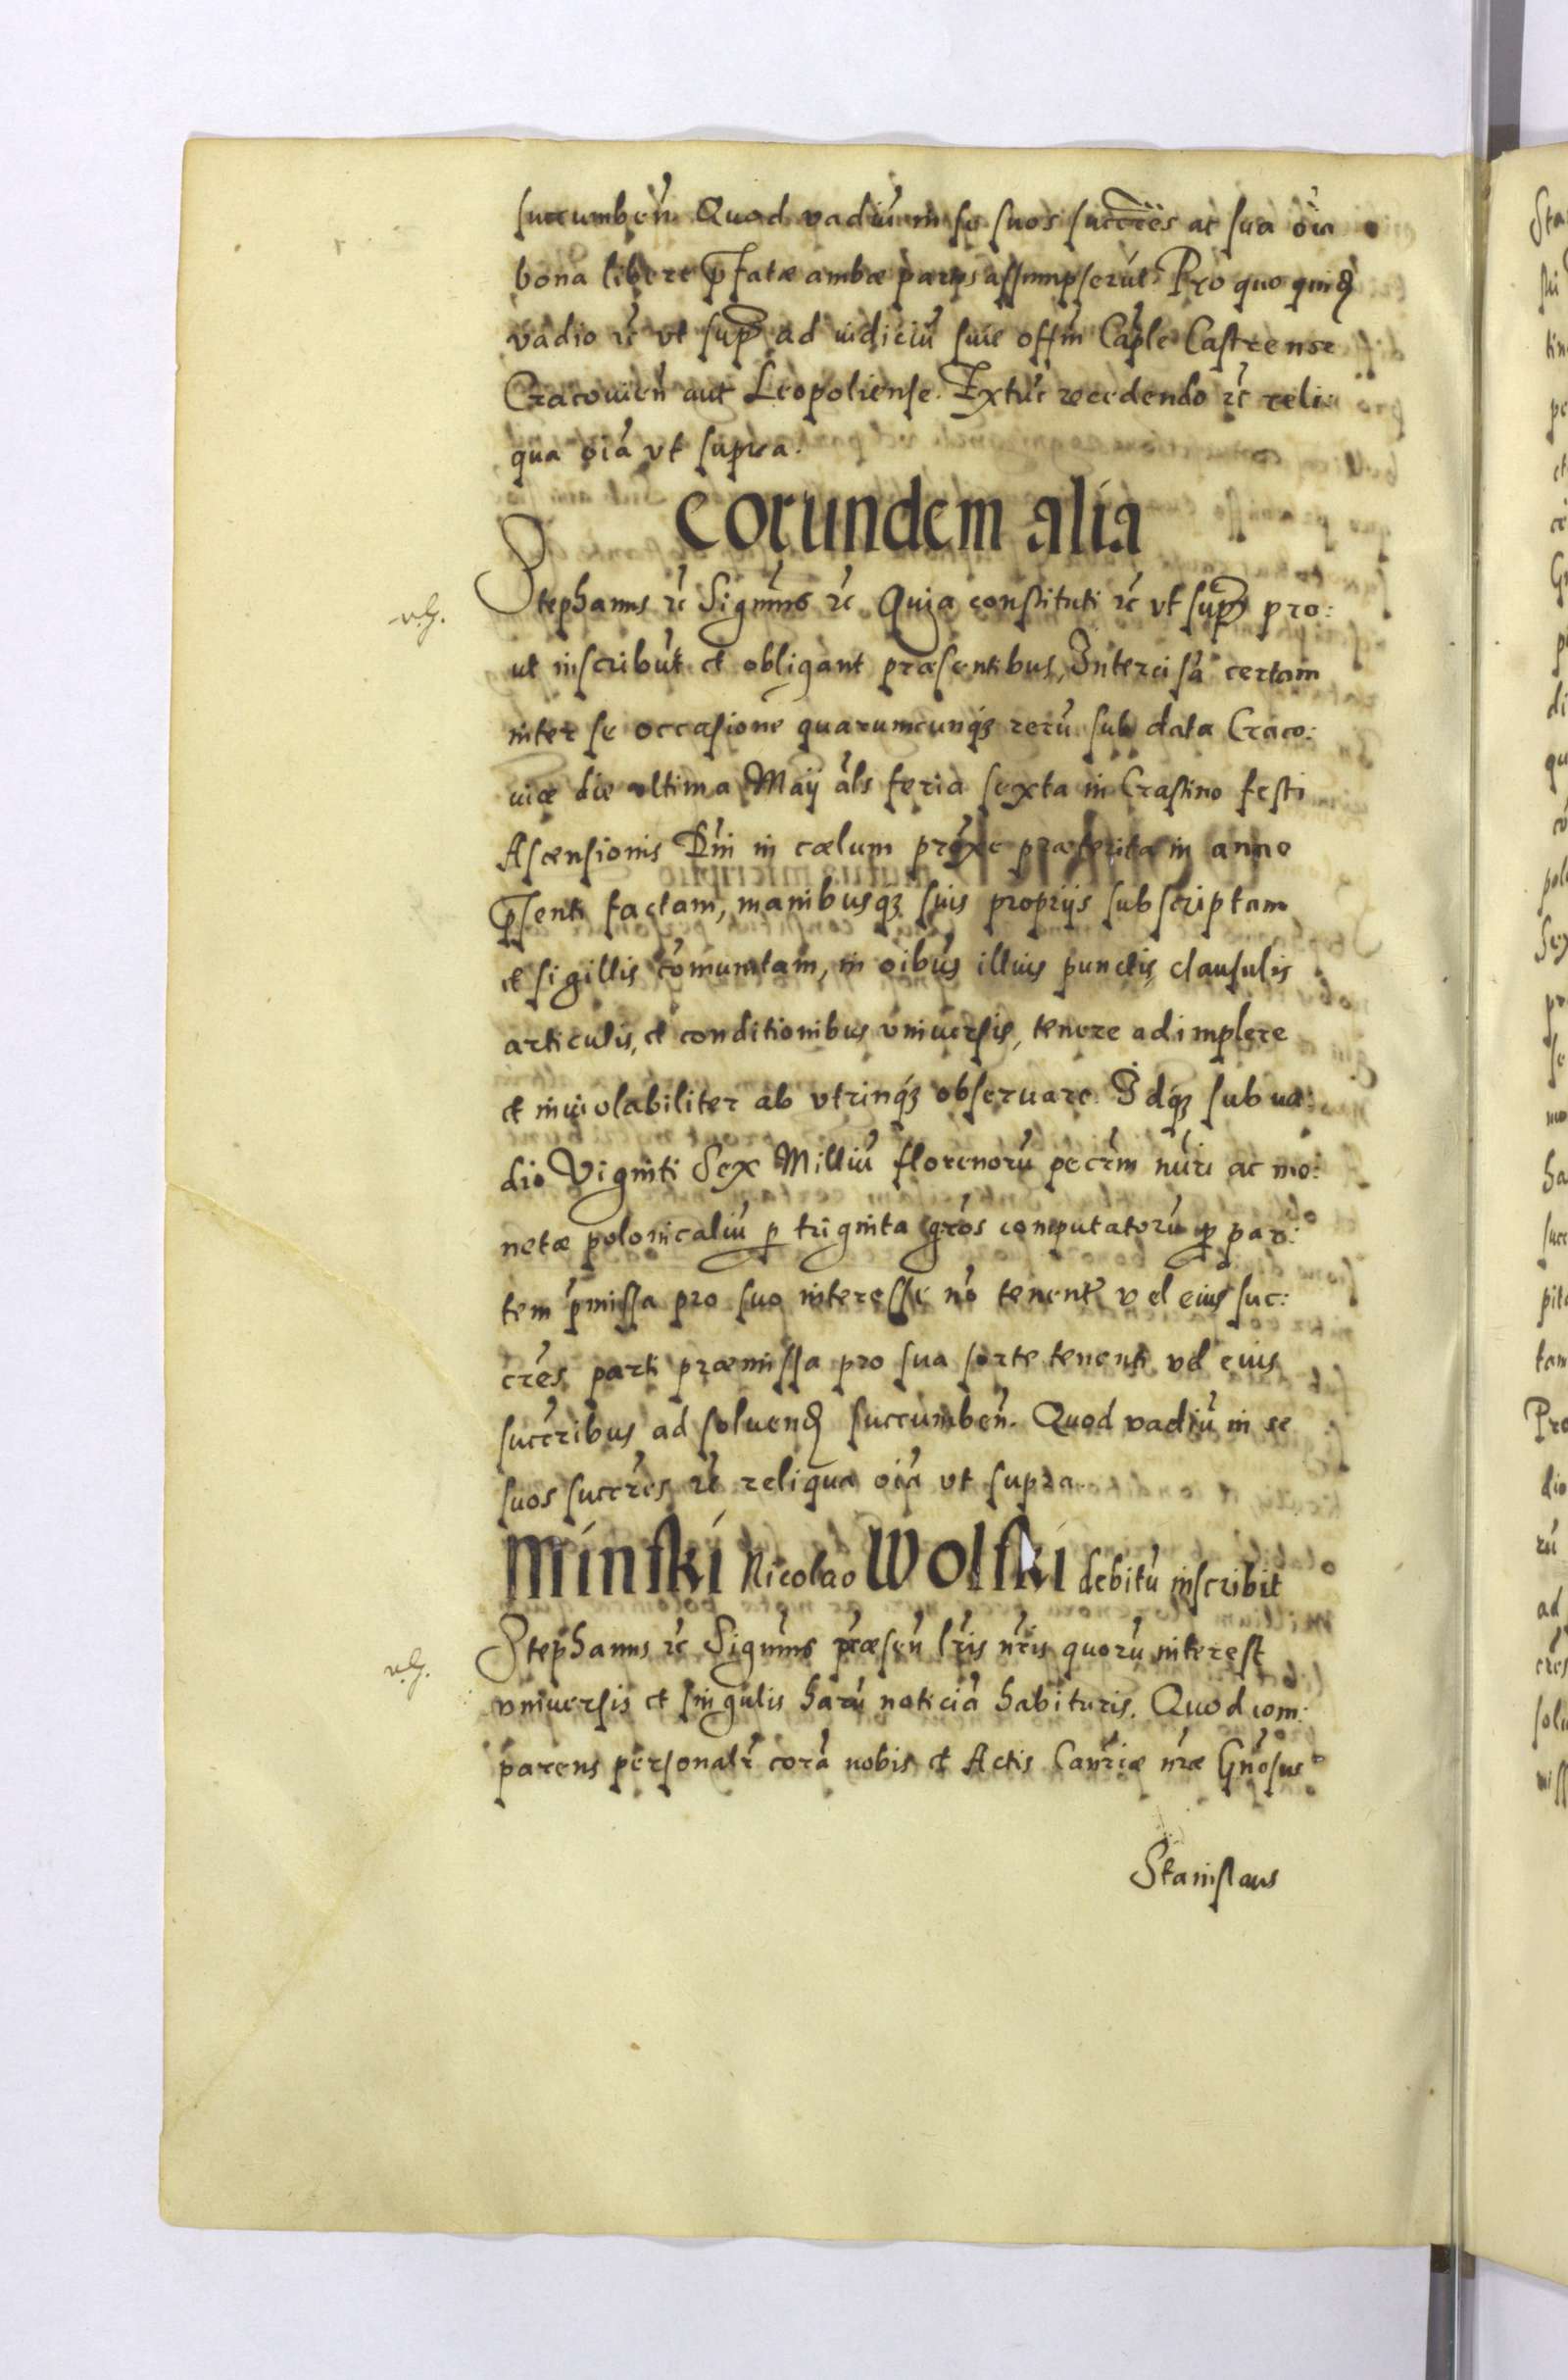 succumbeń. Quod vadiũ in se suos succr̃es ac sua oĩa
bona libere p̃fatæ ambæ partes assumpserũt. Pro quo quidẽ
vadio rc̃ vt sup̃ ad iudiciũ siue offm̃ Cap̃le Castrense
Cracouień aut Leopoliense. Extũc recedendo rc̃ reli:
qua oĩa vt supra.
Eorundem alia
v. G.
Stephanus rc̃ Signm̃s rc̃ Quia constituti rc̃ vt sup̃ pro:
ut inscribũt et obligant præsentibus, Intercisã certam
inter se occasione quarumcunqȝ rerũ sub data Craco:
uiæ die vltima Maij als̃ feria sexta in Crastino festi
Ascensionis Dñi in cælum proxe præterita in anno
p̃senti factam, manibusqȝ suis proprijs subscriptam
et sigillis cõmunitam, in oĩbus illius punctis, clausulis
articulis, et conditionibus vniuersis, tenere adimplere
et inuiolabiliter ab vtrinqȝ obseruare. Idqȝ sub va:
dio Viginti Sex Milliũ florenorũ pecr̃m nũri ac mo:
netæ polonicaliũ p̱ triginta gros̃ computatorũ p̱ par:
tem p̃missa pro suo interesse nõ tenentẽ vel eius suc:
cr̃es parti præmissa pro sua sorte tenenti vel eius
succr̃ibus ad soluendẽ succumbeń. Quod vadiũ in se
suos succr̃es rc̃ reliqua oĩa vt supra
Minski Nicolao Wolski debitũ inscribit
v. G.
Stephanus rc̃ Signm̃s præseń lr̃is nr̃is quorũ interest
vniuersis et singulis harũ noticiã habituris. Quod com:
parens personalr̃ corã nobis et Actis Canr̃iæ nr̃æ Gnõsus
Stanislaus